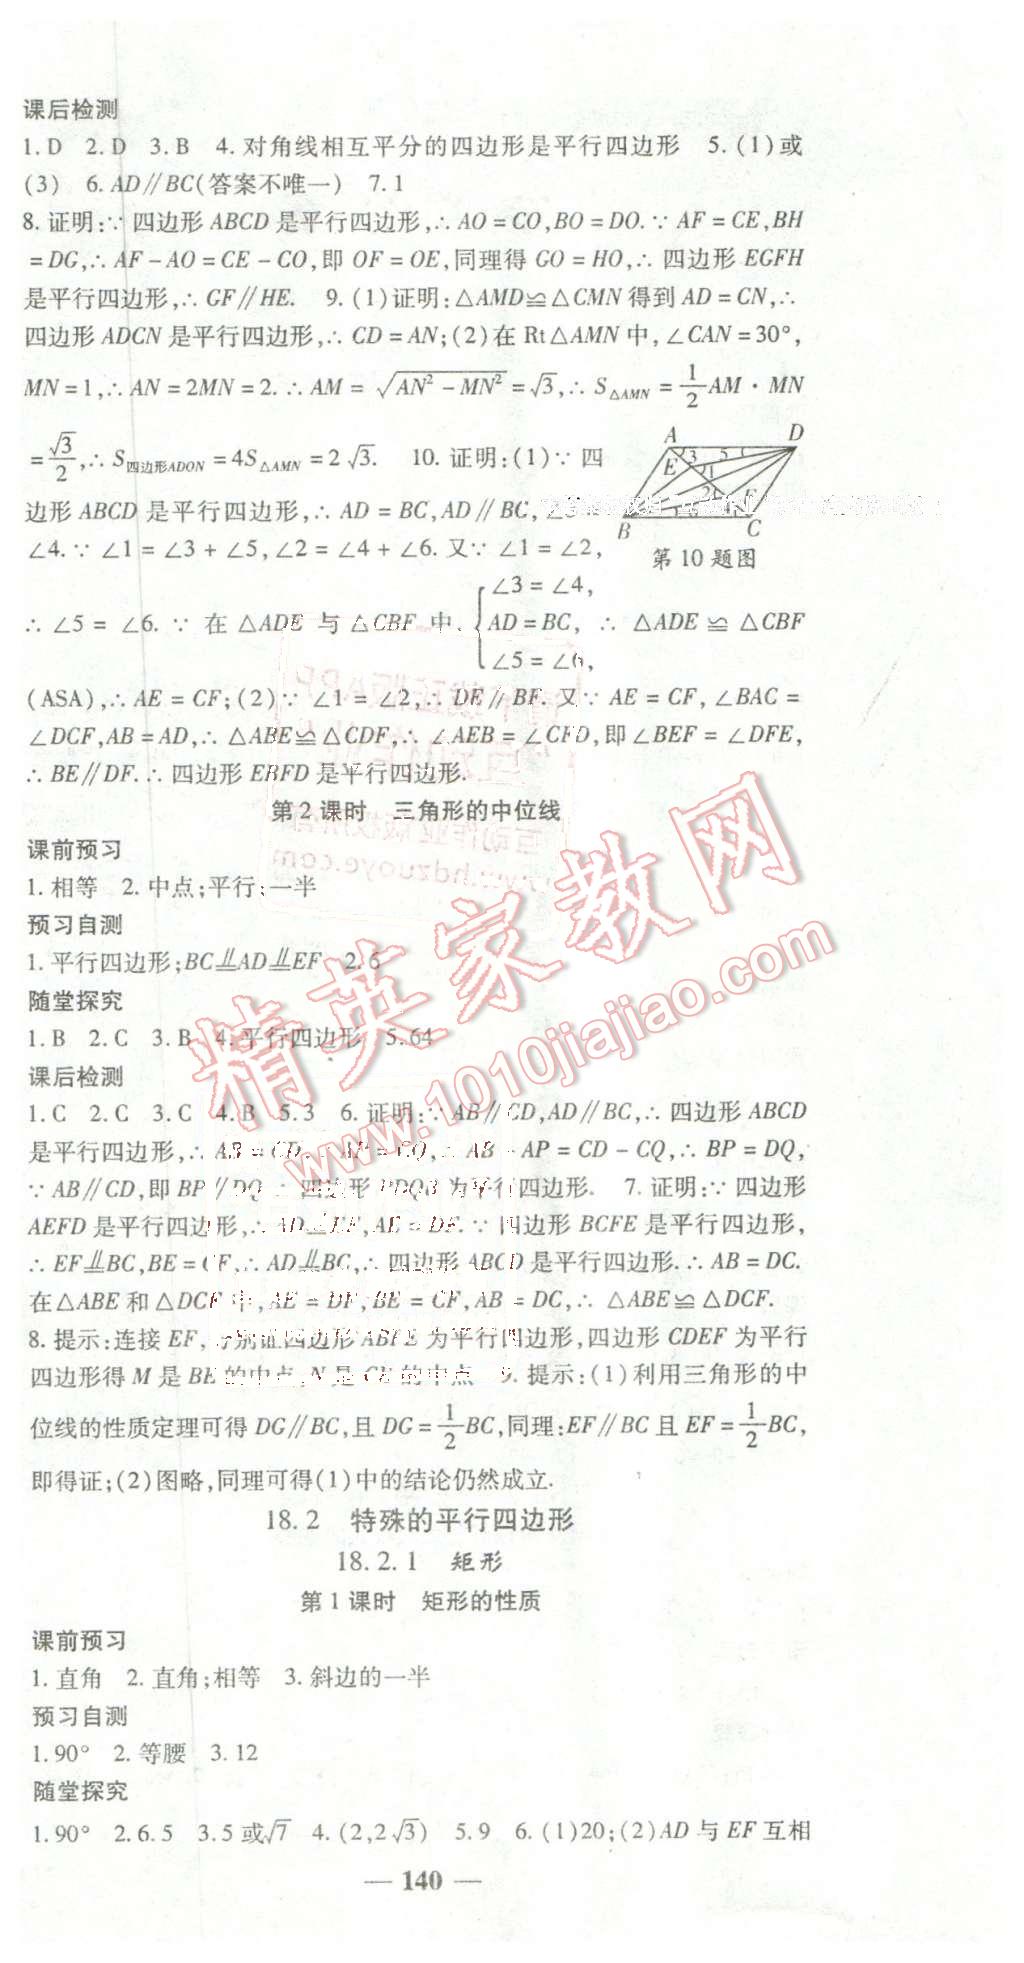 课后检测
1. D 2. D 3. B 4. 对角线相互平分的四边形是平行四边形 5. (1)或
(3) 6. AD∥BC(答案不唯一) 7. 1
8. 证明:∵ 四边形 ABCD 是平行四边形,∴ AO = CO,BO = DO. ∵ AF = CE,BH
= DG,∴ AF - AO = CE - CO,即 OF = OE,同理得 GO = HO,∴ 四边形 EGFH
是平行四边形,∴ GF∥HE. 9. (1)证明:△AMD≌△CMN 得到 AD = CN,∴
四边形 ADCN 是平行四边形,∴ CD = AN;(2)在 Rt△AMN 中,∠CAN = 30°,
MN = 1,∴ AN = 2MN = 2. ∴ AM = √(AN² - MN²) = √3,∴ S△AMN = 1/2 AM · MN
= √3/2,∴ S四边形ADON = 4S△AMN = 2√3. 10. 证明:(1)∵ 四
边形 ABCD 是平行四边形,∴ AD = BC,AD∥BC,
∠4. ∵ ∠1 = ∠3 + ∠5,∠2 = ∠4 + ∠6. 又∵ ∠1 = ∠2,
A D
E 3 5 1
2 F
B C
第 10 题图
∴ ∠5 = ∠6. ∵ 在 △ADE 与 △CBF 中, { ∠3 = ∠4, AD = BC, ∠5 = ∠6, ∴ △ADE ≌ △CBF
(ASA),∴ AE = CF;(2)∵ ∠1 = ∠2,∴ DE∥BF. 又∵ AE = CF,∠BAC =
∠DCF,AB = AD,∴ △ABE≌△CDF,∴ ∠AEB = ∠CFD,即∠BEF = ∠DFE,
∴ BE∥DF. ∴ 四边形 EBFD 是平行四边形.
第 2 课时 三角形的中位线
课前预习
1. 相等 2. 中点;平行;一半
预习自测
1. 平行四边形;BC⊥∥AD⊥∥EF 2. 6
随堂探究
1. B 2. C 3. B 4. 平行四边形 5. 64
课后检测
1. C 2. C 3. C 4. B 5. 3 6. 证明:∵ AB∥CD,AD∥BC,∴ 四边形 ABCD
是平行四边形,∴ AB = CD. AP = CQ,∴ AB - AP = CD - CQ,∴ BP = DQ,
∵ AB∥CD,即 BP∥DQ ∴ 四边形 BPDQ 为平行四边形. 7. 证明:∵ 四边形
AEFD 是平行四边形,∴ AD⊥∥EF,AE = DF. ∵ 四边形 BCFE 是平行四边形,
∴ EF⊥∥BC,BE = CF,∴ AD⊥∥BC,∴ 四边形 ABCD 是平行四边形. ∴ AB = DC.
在△ABE 和△DCF 中,AE = DF,BE = CF,AB = DC,∴ △ABE≌△DCF.
8. 提示:连接 EF,分别证四边形 ABFE 为平行四边形,四边形 CDEF 为平行
四边形得 M 是 BE 的中点,N 是 CE 的中点 9. 提示:(1)利用三角形的中
位线的性质定理可得 DG∥BC,且 DG = 1/2 BC,同理:EF∥BC 且 EF = 1/2 BC,
即得证;(2)图略,同理可得(1)中的结论仍然成立.
18. 2 特殊的平行四边形
18. 2. 1 矩形
第 1 课时 矩形的性质
课前预习
1. 直角 2. 直角;相等 3. 斜边的一半
预习自测
1. 90° 2. 等腰 3. 12
随堂探究
1. 90° 2. 6. 5 3. 5 或√7 4. (2,2√3) 5. 9 6. (1)20;(2)AD 与 EF 互相
— 140 —
精英家教网
www.1010jiajiao.com